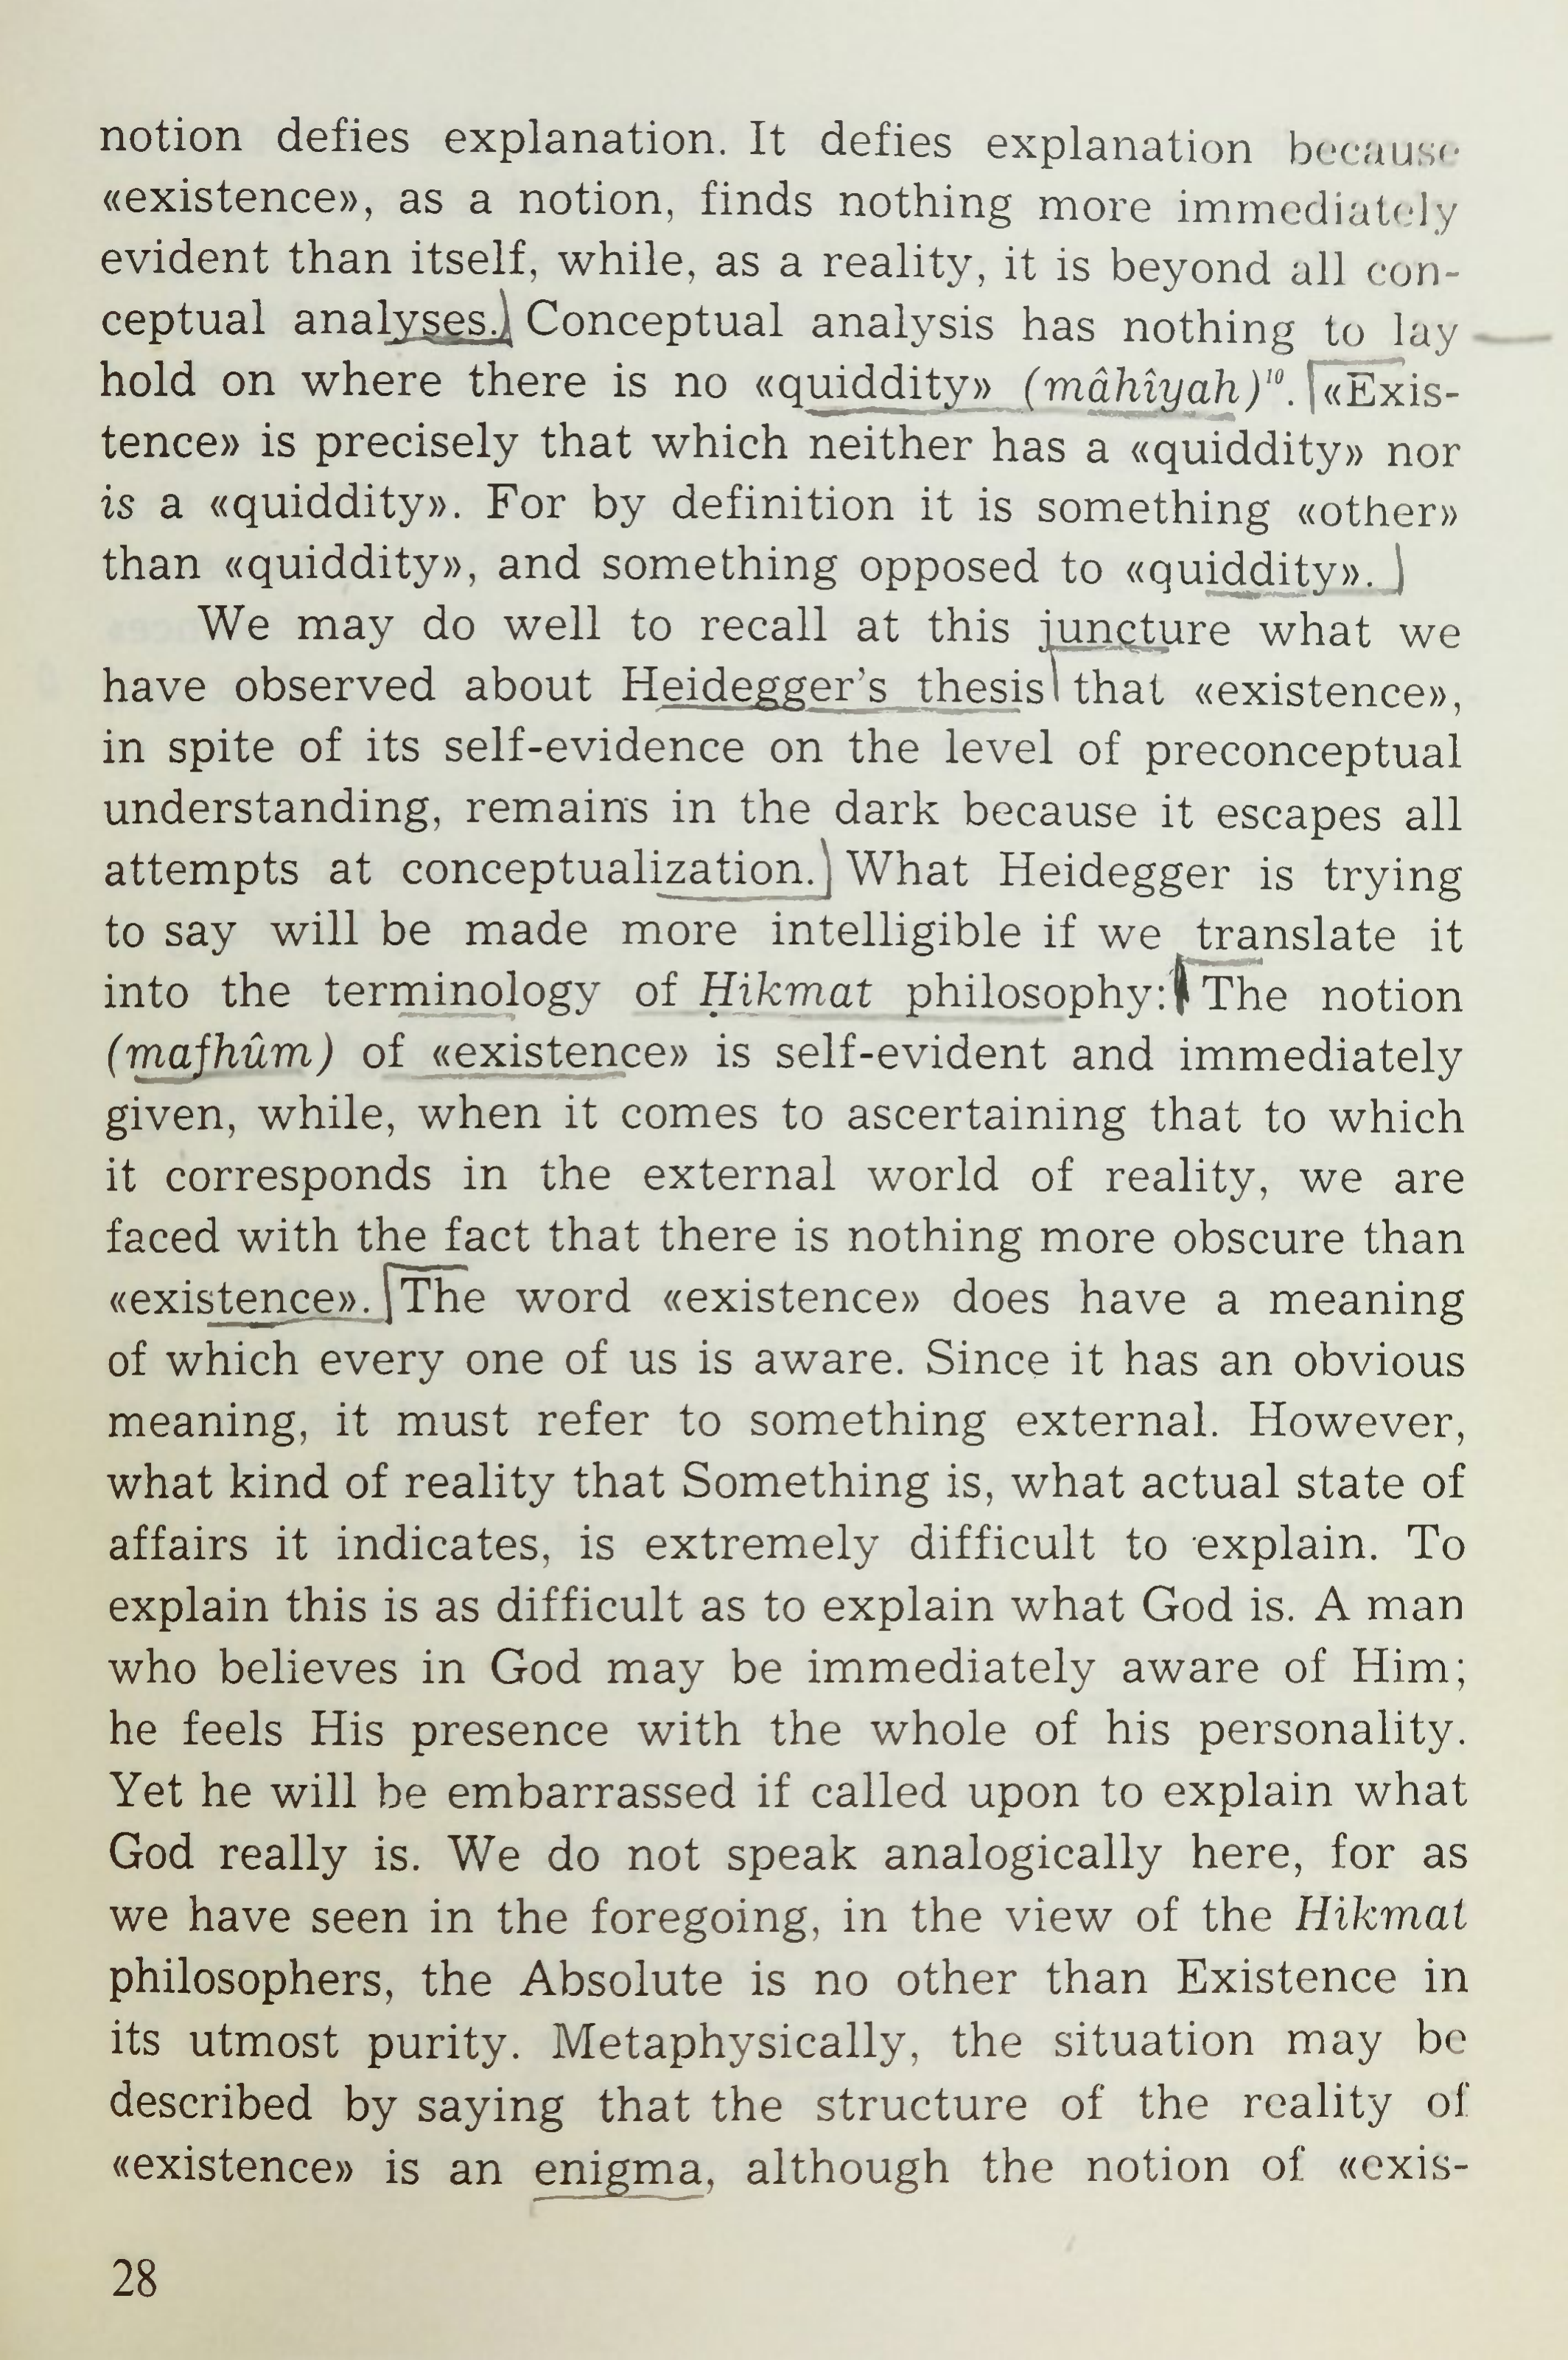 notion defies explanation. It defies explanation because
«existence», as a notion, finds nothing more immediately
evident than itself, while, as a reality, it is beyond all con-
ceptual analyses. Conceptual analysis has nothing to lay
hold on where there is no «quiddity» (mâhîyah)¹⁰. «Exis-
tence» is precisely that which neither has a «quiddity» nor
is a «quiddity». For by definition it is something «other»
than «quiddity», and something opposed to «quiddity».
We may do well to recall at this juncture what we
have observed about Heidegger's thesis that «existence»,
in spite of its self-evidence on the level of preconceptual
understanding, remains in the dark because it escapes all
attempts at conceptualization. What Heidegger is trying
to say will be made more intelligible if we translate it
into the terminology of Ḥikmat philosophy: The notion
(mafhûm) of «existence» is self-evident and immediately
given, while, when it comes to ascertaining that to which
it corresponds in the external world of reality, we are
faced with the fact that there is nothing more obscure than
«existence». The word «existence» does have a meaning
of which every one of us is aware. Since it has an obvious
meaning, it must refer to something external. However,
what kind of reality that Something is, what actual state of
affairs it indicates, is extremely difficult to explain. To
explain this is as difficult as to explain what God is. A man
who believes in God may be immediately aware of Him;
he feels His presence with the whole of his personality.
Yet he will be embarrassed if called upon to explain what
God really is. We do not speak analogically here, for as
we have seen in the foregoing, in the view of the Hikmat
philosophers, the Absolute is no other than Existence in
its utmost purity. Metaphysically, the situation may be
described by saying that the structure of the reality of
«existence» is an enigma, although the notion of «exis-
28